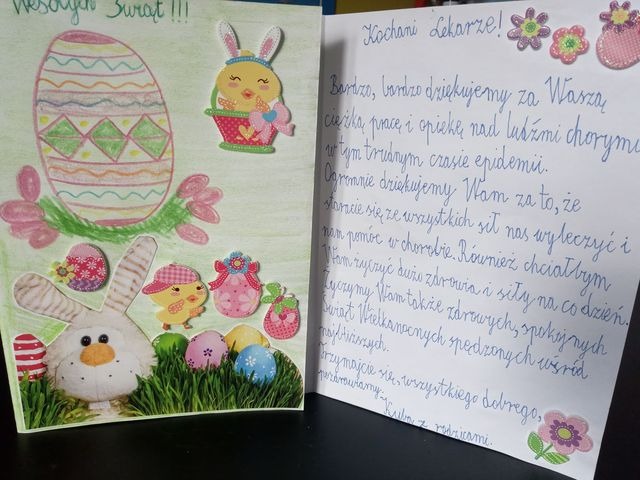 Wesołych Świąt !!!
Kochani Lekarze!
Bardzo, bardzo dziękujemy za Waszą
ciężką pracę i opiekę nad ludźmi chorymi
w tym trudnym czasie epidemii.
Ogromnie dziękujemy Wam za to, że
staracie się ze wszystkich sił nas wyleczyć i
nam pomóc w chorobie. Również chciałbym
Wam życzyć dużo zdrowia i siły na co dzień.
Życzymy Wam także zdrowych, spokojnych
Świąt Wielkanocnych spędzonych wśród
najbliższych.
Trzymajcie się, wszystkiego dobrego,
pozdrawiamy.
Kuba z rodzicami.